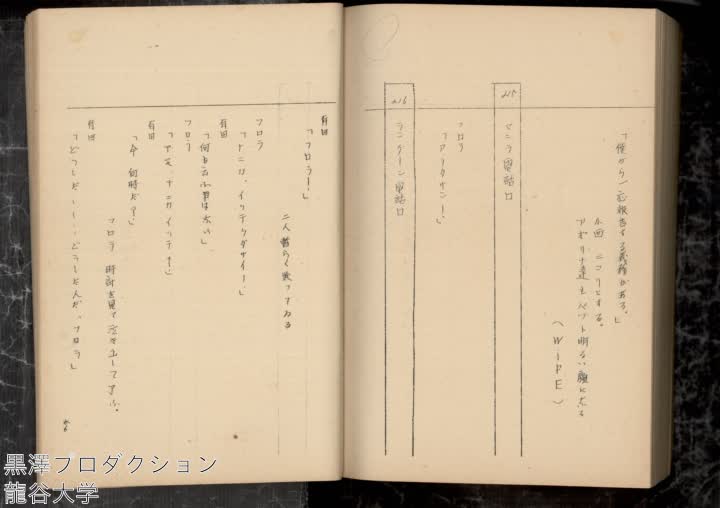 「僕から一応報告する義務がある。」
小西 ニコリとする。
アポリナ達もパット明るい顔になる
（WIPE）
215
マニラ電話口
フロラ
「アリタサン！」
216
ランターン電話口
有田
「フロラ！」
二人暫らく黙ってゐる
フロラ
「ナニカ、イッテクダサイ！」
有田
「何も云ふ事は無い」
フロラ
「デモ、ナニカイッテ！」
有田
「今 何時だ？」
フロラ 時計を見て泣き出して了ふ。
有田
「どうした！……どうしたんだ、フロラ」
黒澤プロダクション
龍谷大学